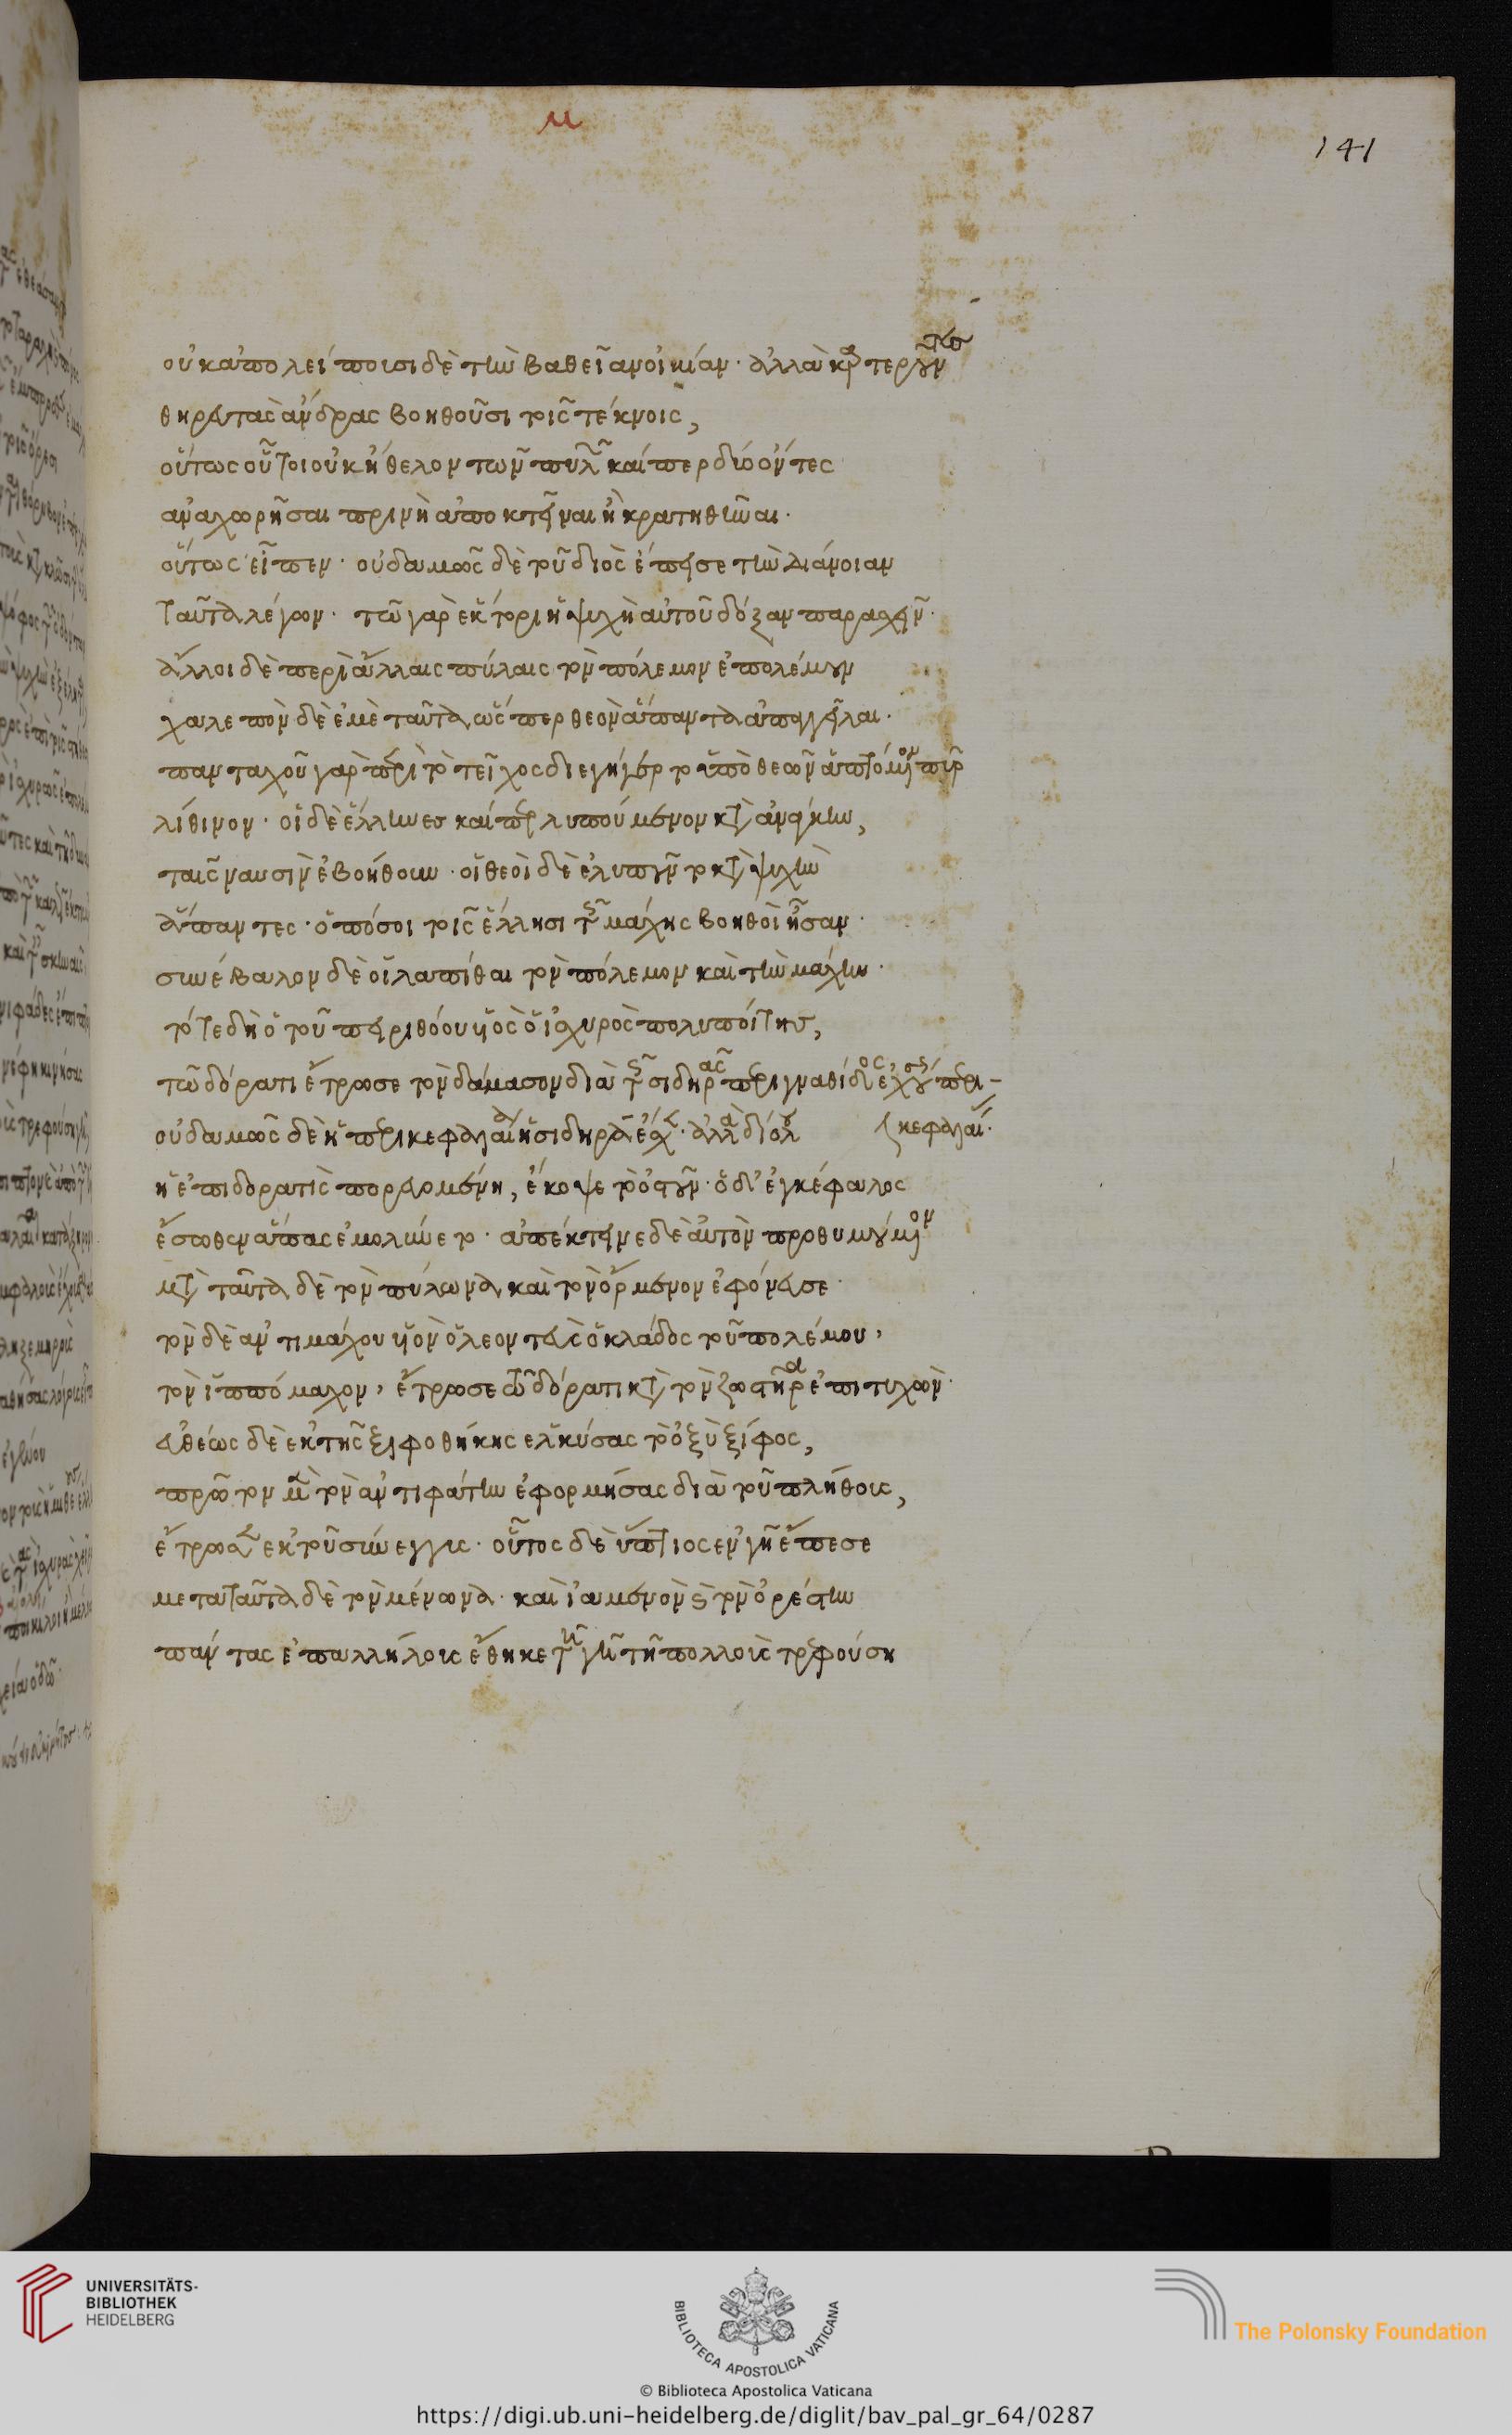 μ
141
οὐκ ἀπολείπουσι δὲ τὴν βαθεῖαν οἰκίαν· ἀλλὰ καρτεροῦντες
θηρευτὰς ἄνδρας βοηθοῦσι τοῖς τέκνοις,
οὕτως οὗτοι οὐκ ἤθελον τῶν πυλῶν καίπερ δύο ὄντες
ἀναχωρῆσαι πρινὴ ἀποκτεῖναι ἢ κρατηθῆναι·
οὕτως εἶπεν· οὐδαμῶς δὲ τοῦ διὸς ἔπεισε τὴν διάνοιαν
ταῦτα λέγων· τῶ γὰρ ἕκτορι ἡ ψυχὴ αὐτοῦ δόξαν παρασχεῖν·
ἄλλοι δὲ περὶ ἄλλαις πύλαις τὸν πόλεμον ἐπολέμουν
χαλεπὸν δὲ ἐμὲ ταῦτα ὥσπερ θεὸν ἅπαντα ἀπαγγεῖλαι·
πανταχοῦ γὰρ περὶ τὸ τεῖχος διεγήγερτο ὑπὸ θεῶν ἁπτόμενον πῦρ
λίθινον· οἱ δὲ ἕλληνες καίπερ λυπούμενοι κατὰ ἀνάγκην,
ταῖς ναυσὶν ἐβοήθουν· οἱ θεοὶ δὲ ἐλυποῦντο κατὰ ψυχὴν
ἅπαντες· ὁπόσοι τοῖς ἕλλησι τῆς μάχης βοηθοὶ ἦσαν·
συνέβαλον δὲ οἱ λαπίθαι τὸν πόλεμον καὶ τὴν μάχην·
τότε δὴ ὁ τοῦ πειριθόου υἱὸς ὁ ἰσχυρὸς πολυποίτης,
τῶ δόρατι ἔτρωσε τὸν δάμασον διὰ τῆς σιδηρᾶς παραγναθίδος ἐχούσης περι-
κεφαλαίας·
οὐδαμῶς δὲ ἡ περικεφαλαία ἡ σιδηρᾶ ἔσχεν· ἀλλὰ διόλου
ἡ ἐπιδορατὶς πορευομένη, ἔκοψε τὸ ὀστοῦν· ὁ δ' ἐγκέφαλος
ἔσωθεν ἅπας ἐμολύνετο· ἀπέκτεινε δὲ αὐτὸν προθυμούμενον
μετὰ ταῦτα δὲ τὸν πύλωνα καὶ τὸν ὄρμενον ἐφόνευσε·
τὸν δὲ ἀντιμάχου υἱὸν ὁ λεοντεὺς ὁ κλάδος τοῦ πολέμου,
τὸν ἱππόμαχον, ἔτρωσε τῶ δόρατι κατὰ τὸν ζωστῆρα ἐπιτυχὼν·
εὐθέως δὲ ἐκ τῆς ξιφοθήκης ἑλκύσας τὸ ὀξὺ ξίφος,
πρῶτον μὲν τὸν ἀντιφάτην ἐφορμήσας διὰ τοῦ πλήθους,
ἔτρωσεν ἐκ τοῦ σύνεγγυς· οὗτος δὲ ὕπτιος ἐν γῆ ἔπεσε
μετὰ ταῦτα δὲ τὸν μένωνα· καὶ ἰαμενὸν καὶ τὸν ὀρέστην
πάντας ἐπαλλήλους ἔθηκε τῆ γῆ τῆ πολλοὺς τρεφούση
UNIVERSITÄTS-
BIBLIOTHEK
HEIDELBERG
BIBLIOTECA APOSTOLICA VATICANA
The Polonsky Foundation
© Biblioteca Apostolica Vaticana
https://digi.ub.uni-heidelberg.de/diglit/bav_pal_gr_64/0287